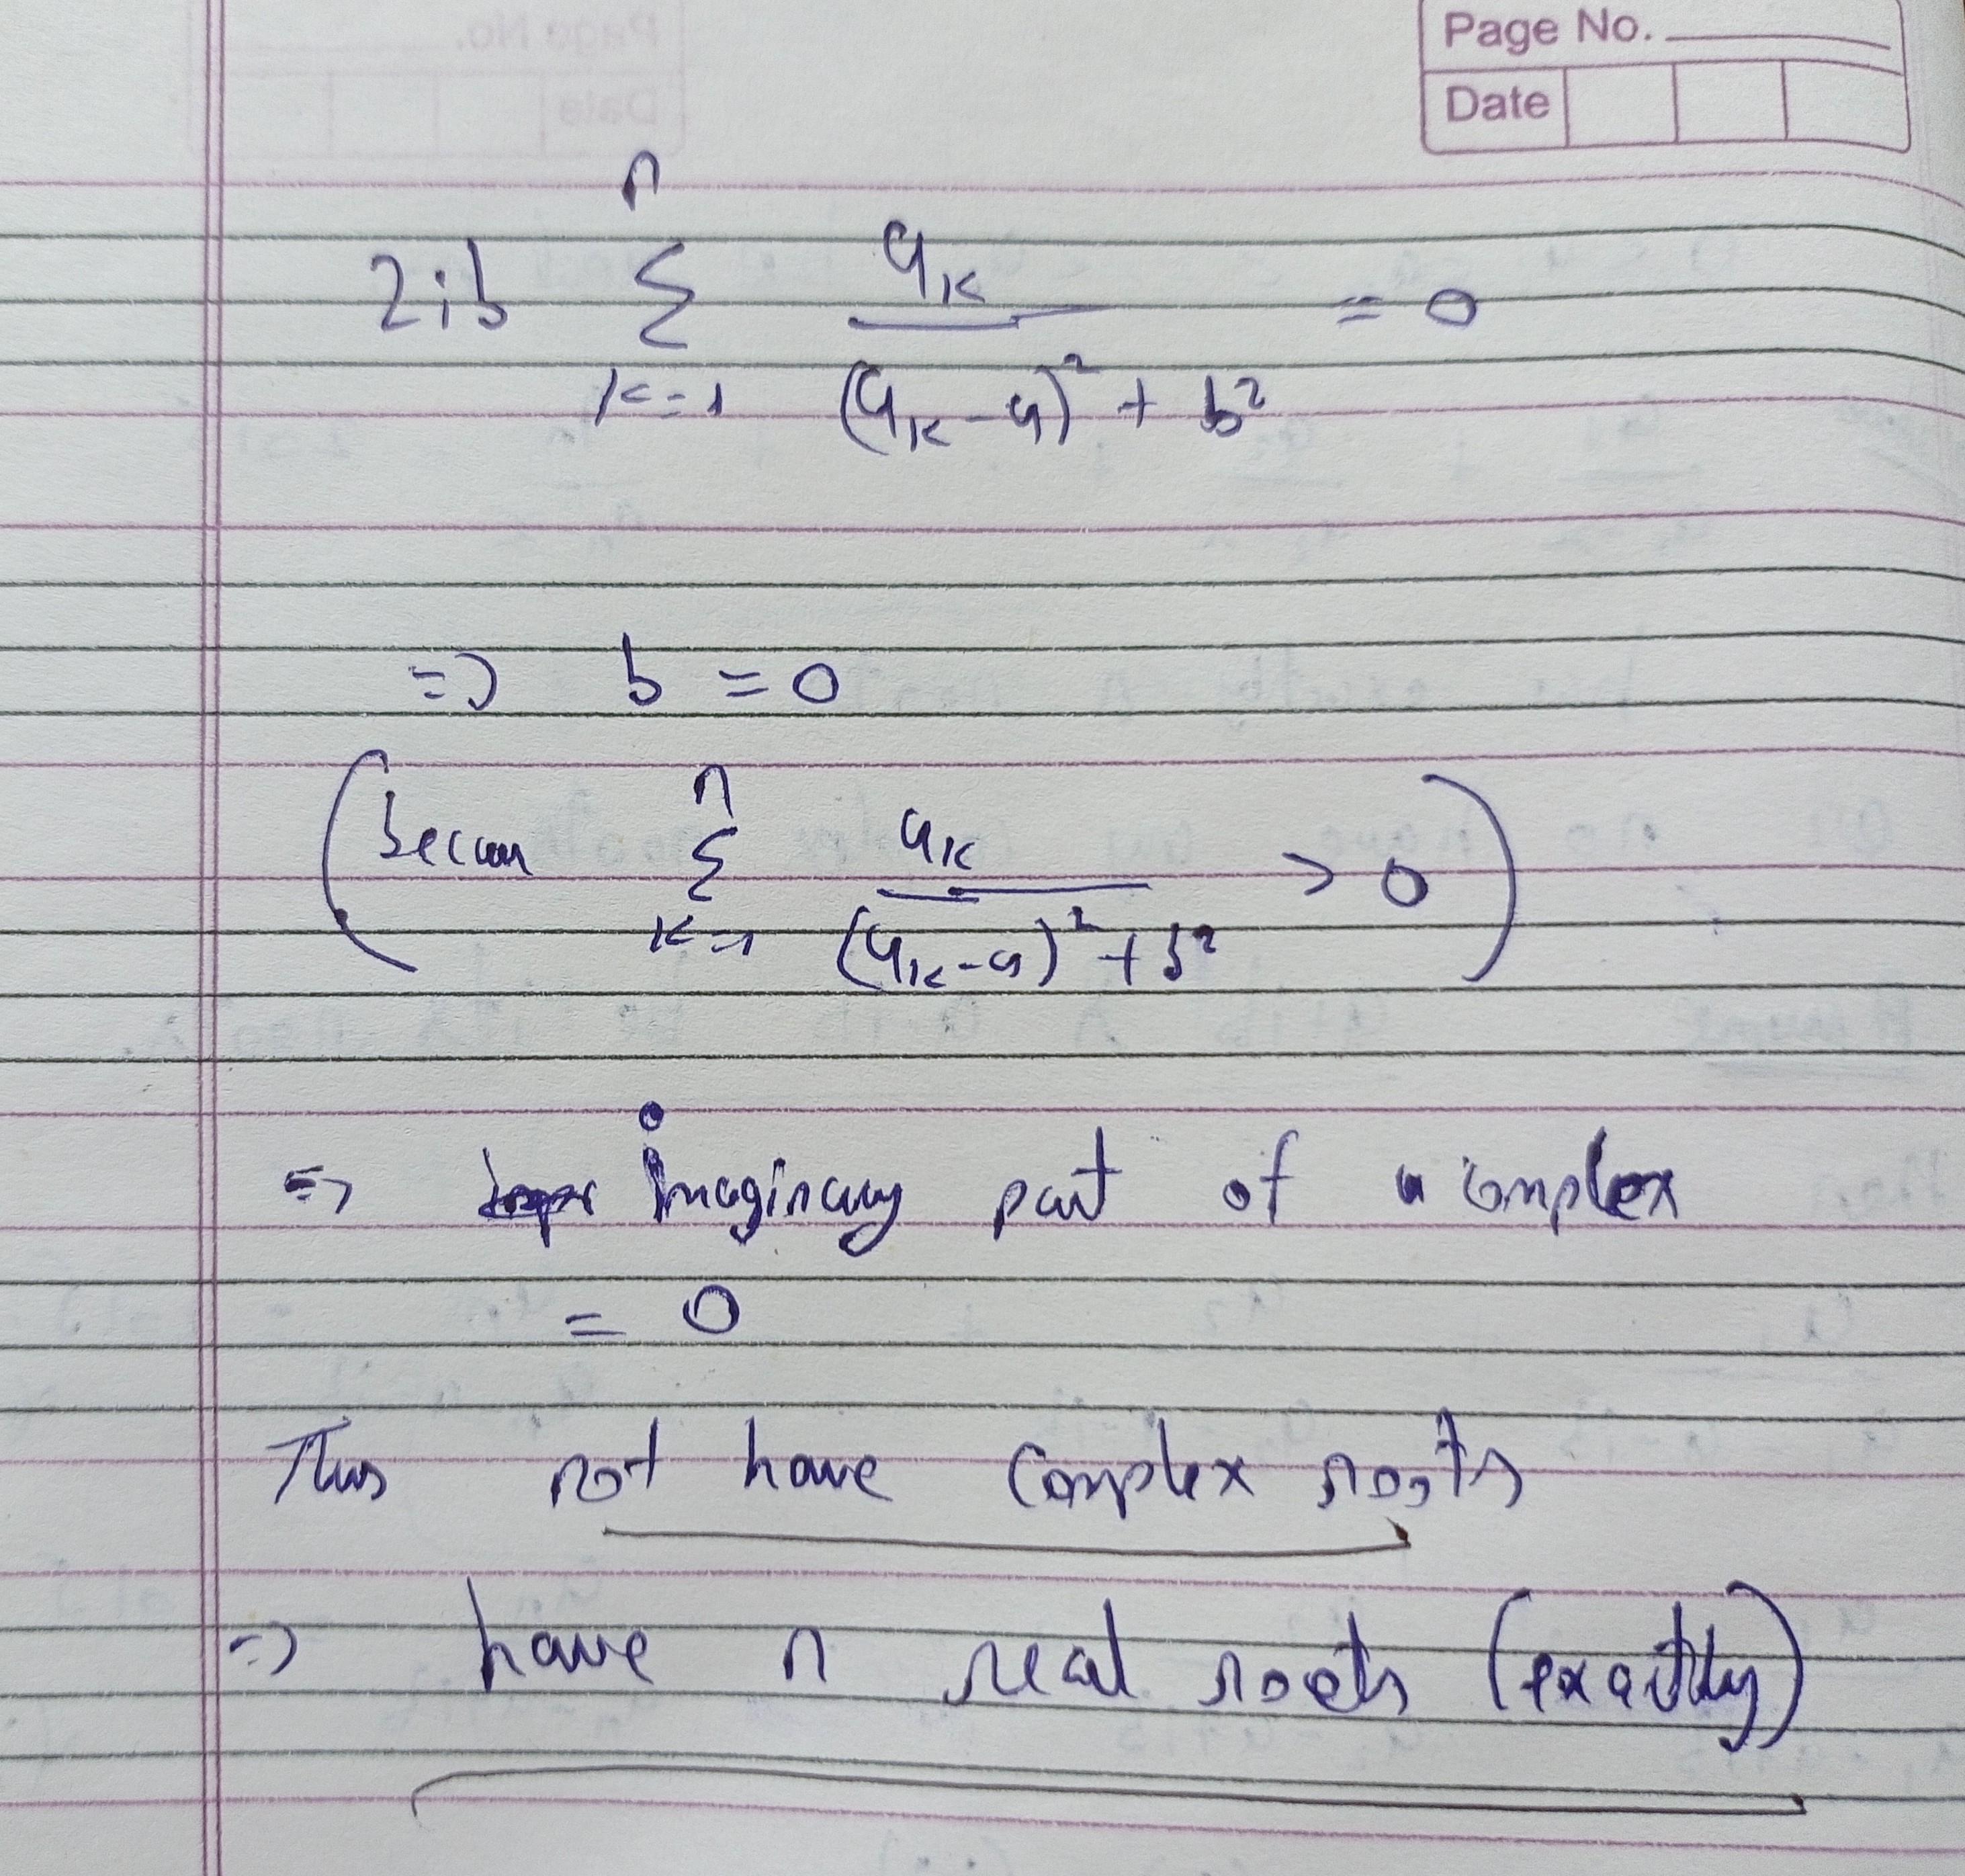 Page No.
Date
2ib Σ_{k=1}^{n} a_k / ((a_k - a)² + b²) = 0
=> b = 0
(becau Σ_{k=1}^{n} a_k / ((a_k - a)² + b²) > 0)
=> imaginary part of a complex
= 0
Thus not have complex roots
=> have n real roots (exactly)